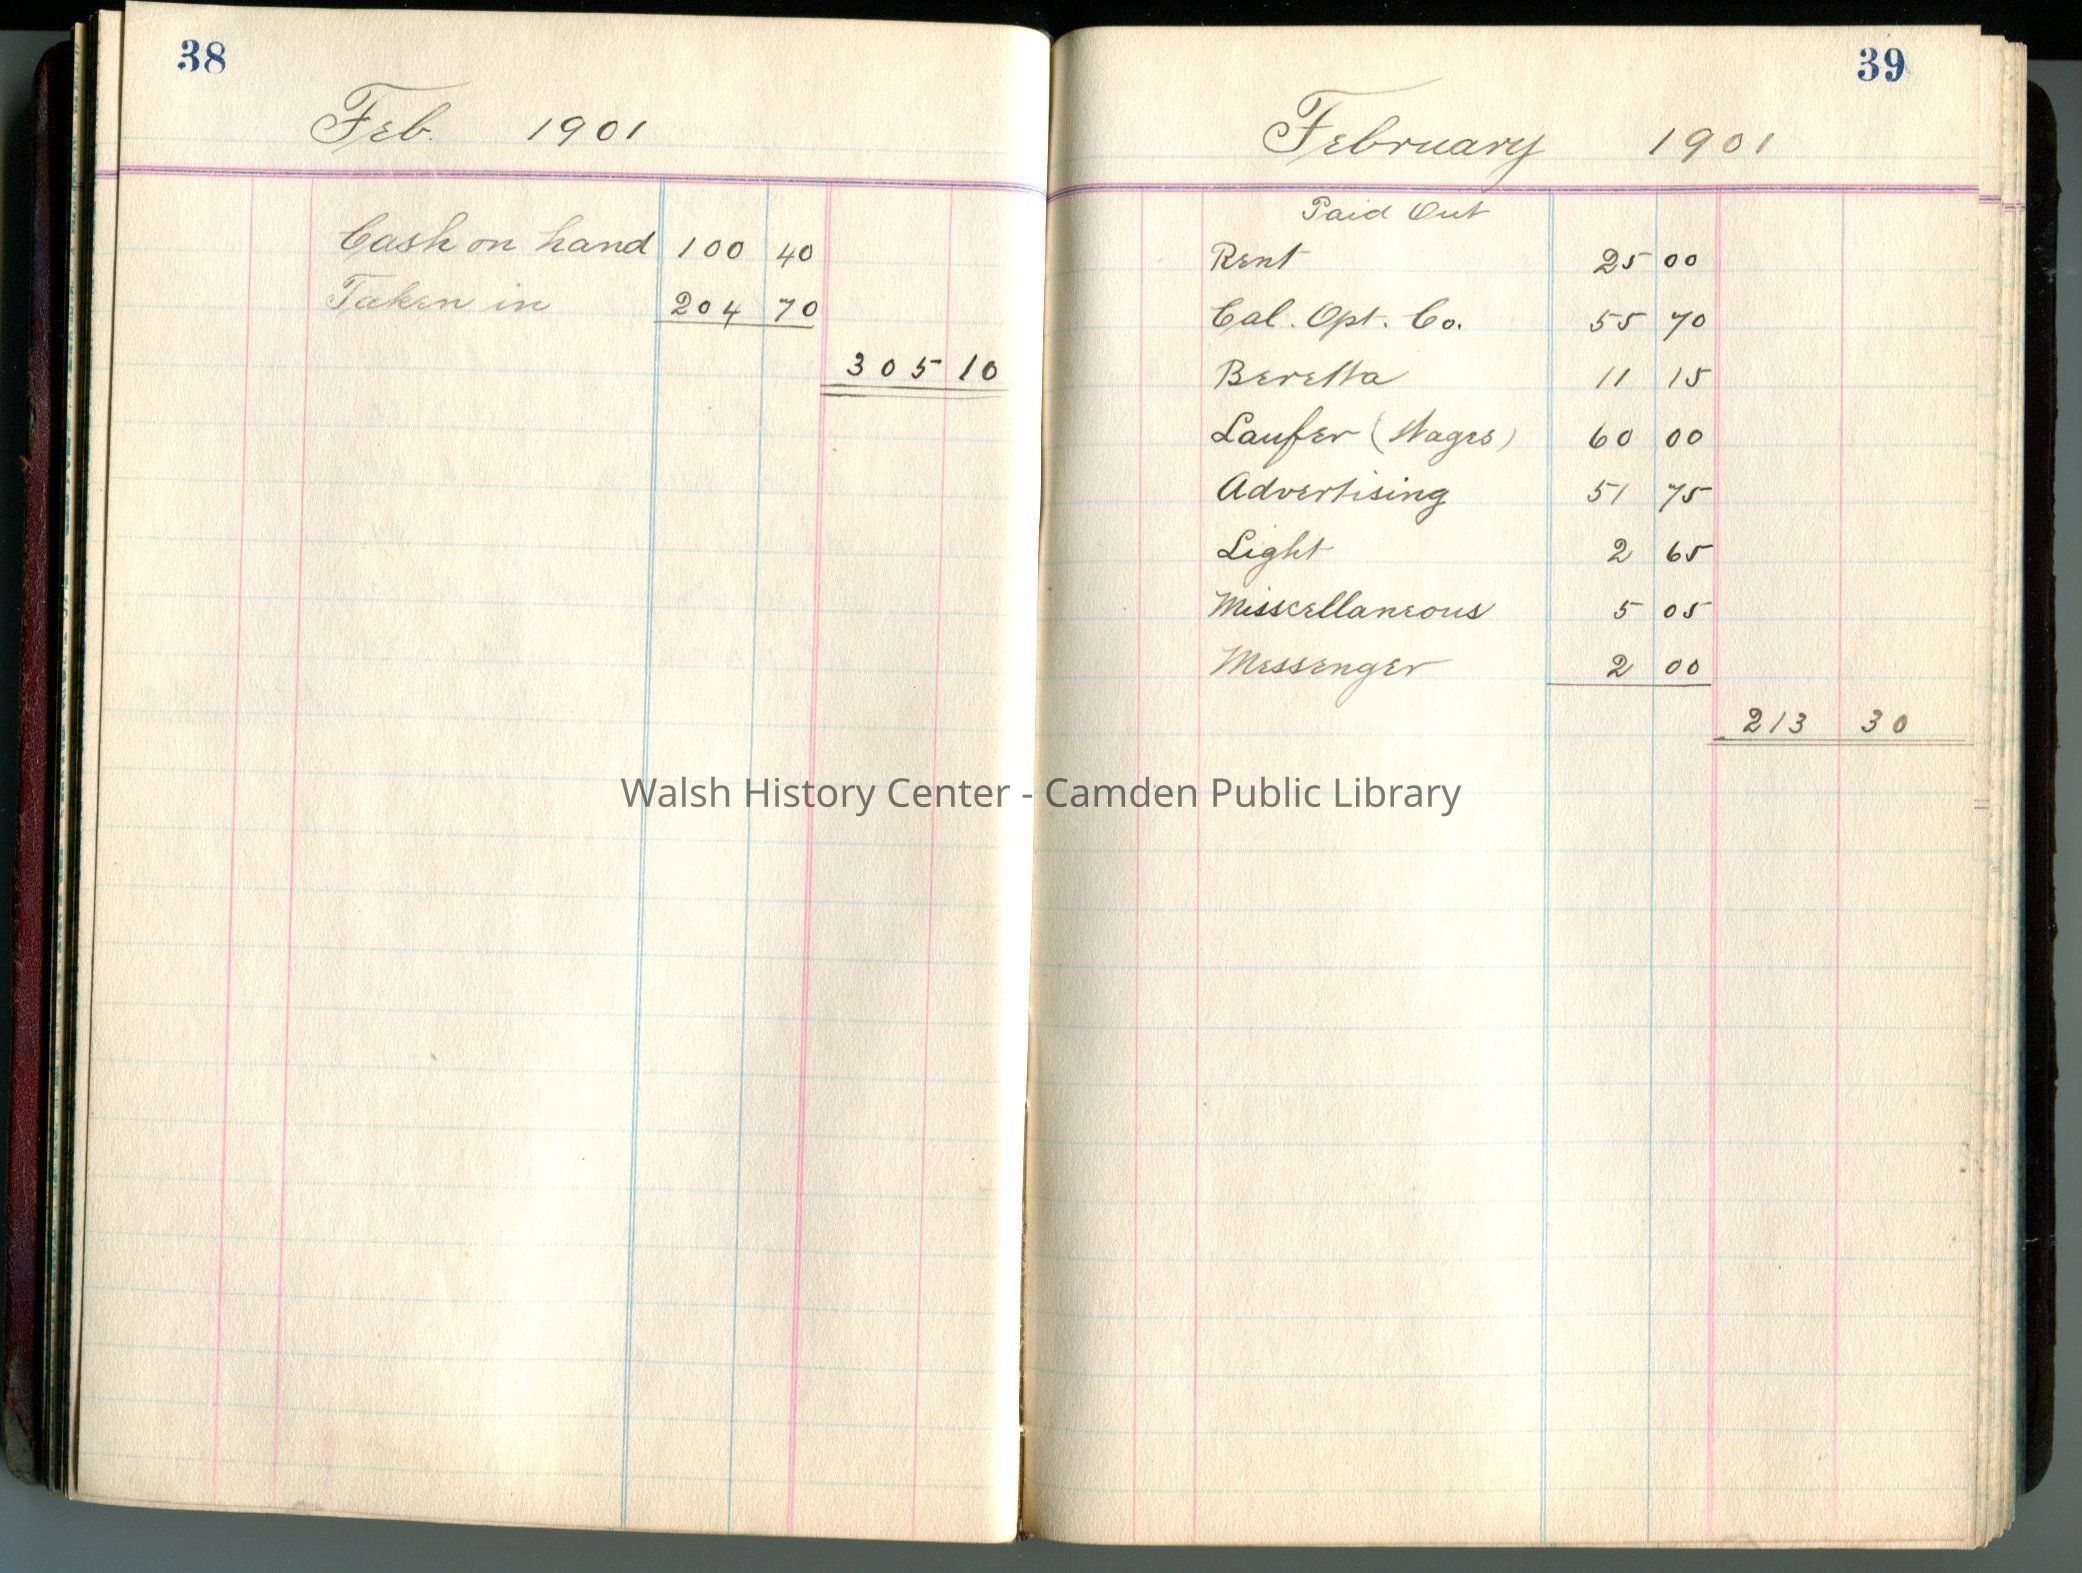 38
Feb. 1901
Cash on hand 100 40
Taken in 204 70
305 10
39
February 1901
Paid Out
Rent 25 00
Cal. Opt. Co. 55 70
Beretta 11 15
Laufer (Wages) 60 00
Advertising 51 75
Light 2 65
Misscellaneous 5 05
Messenger 2 00
213 30
Walsh History Center - Camden Public Library